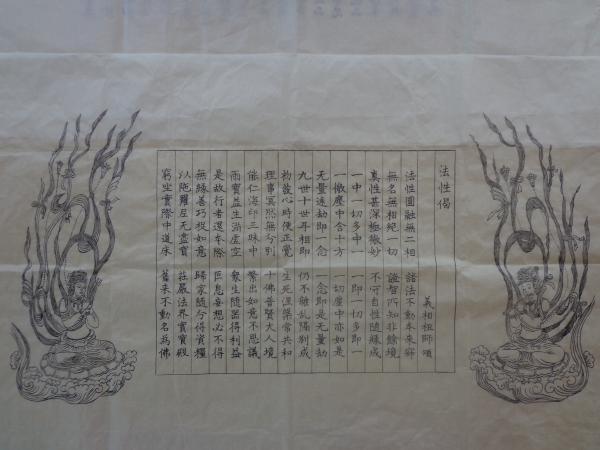 法性偈
義相祖師頌
法性圓融無二相 諸法不動本來寂
無名無相絕一切 證智所知非餘境
真性甚深極微妙 不守自性隨緣成
一中一切多中一 一即一切多即一
一微塵中含十方 一切塵中亦如是
無量遠劫即一念 一念即是無量劫
九世十世互相即 仍不雜亂隔別成
初發心時便正覺 生死涅槃常共和
理事冥然無分別 十佛普賢大人境
能仁海印三昧中 繁出如意不思議
雨寶益生滿虛空 眾生隨器得利益
是故行者還本際 叵息妄想必不得
無緣善巧捉如意 歸家隨分得資糧
以陀羅尼無盡寶 莊嚴法界實寶殿
窮坐實際中道床 舊來不動名為佛